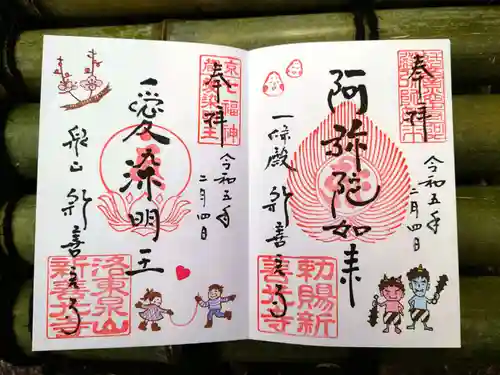 奉拝
阿弥陀如来
一條殿 新善光寺
令和五年
二月四日
勅賜新
善光寺
奉拝
愛染明王
泉山 新善光寺
令和五年
二月四日
洛東泉山
新善光寺